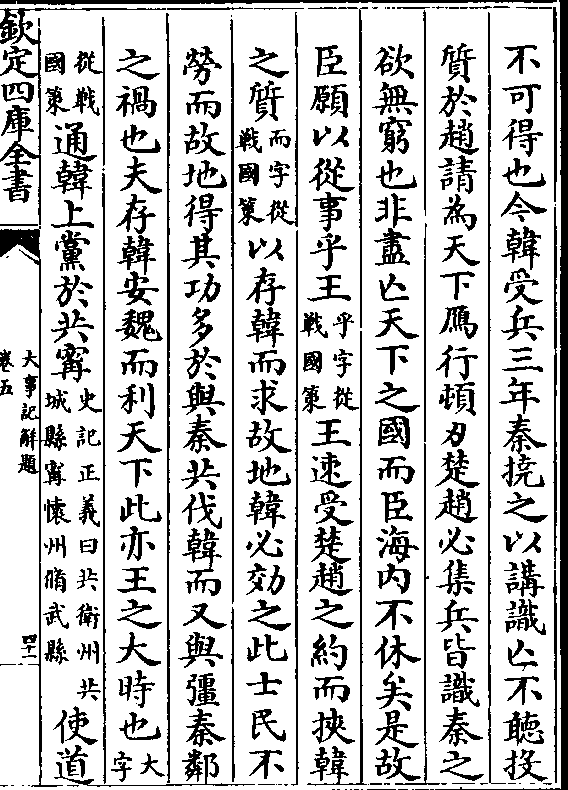 不可得也今韓受兵三年秦撓之以講識亡不聽投
質於趙請為天下鴈行頓刃楚趙必集兵皆識秦之
欲無窮也非盡亡天下之國而臣海内不休矣是故
臣願以從事乎王乎字從戰國策王速受楚趙之約而挾韓
之質而字從戰國策以存韓而求故地韓必効之此士民不
勞而故地得其功多於與秦共伐韓而又與彊秦鄰
之禍也夫存韓安魏而利天下此亦王之大時也大字
從戰國策通韓上黨於共甯史記正義曰共衛州共城縣甯懷州脩武縣使道
欽定四庫全書
大事記解題
卷五
四十一